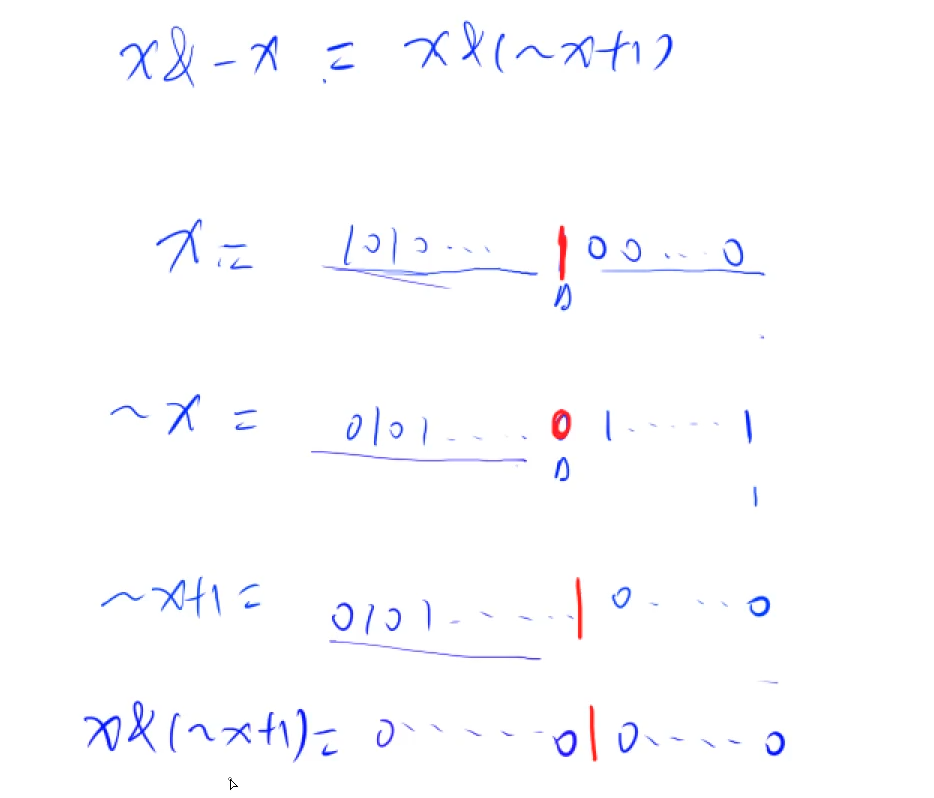 x&-x = x&(~x+1)
x = 1010... 1 00...0
~x = 0101.... 0 1.....1
1
~x+1 = 0101...... 1 0....0
x&(~x+1) = 0......0 1 0....0